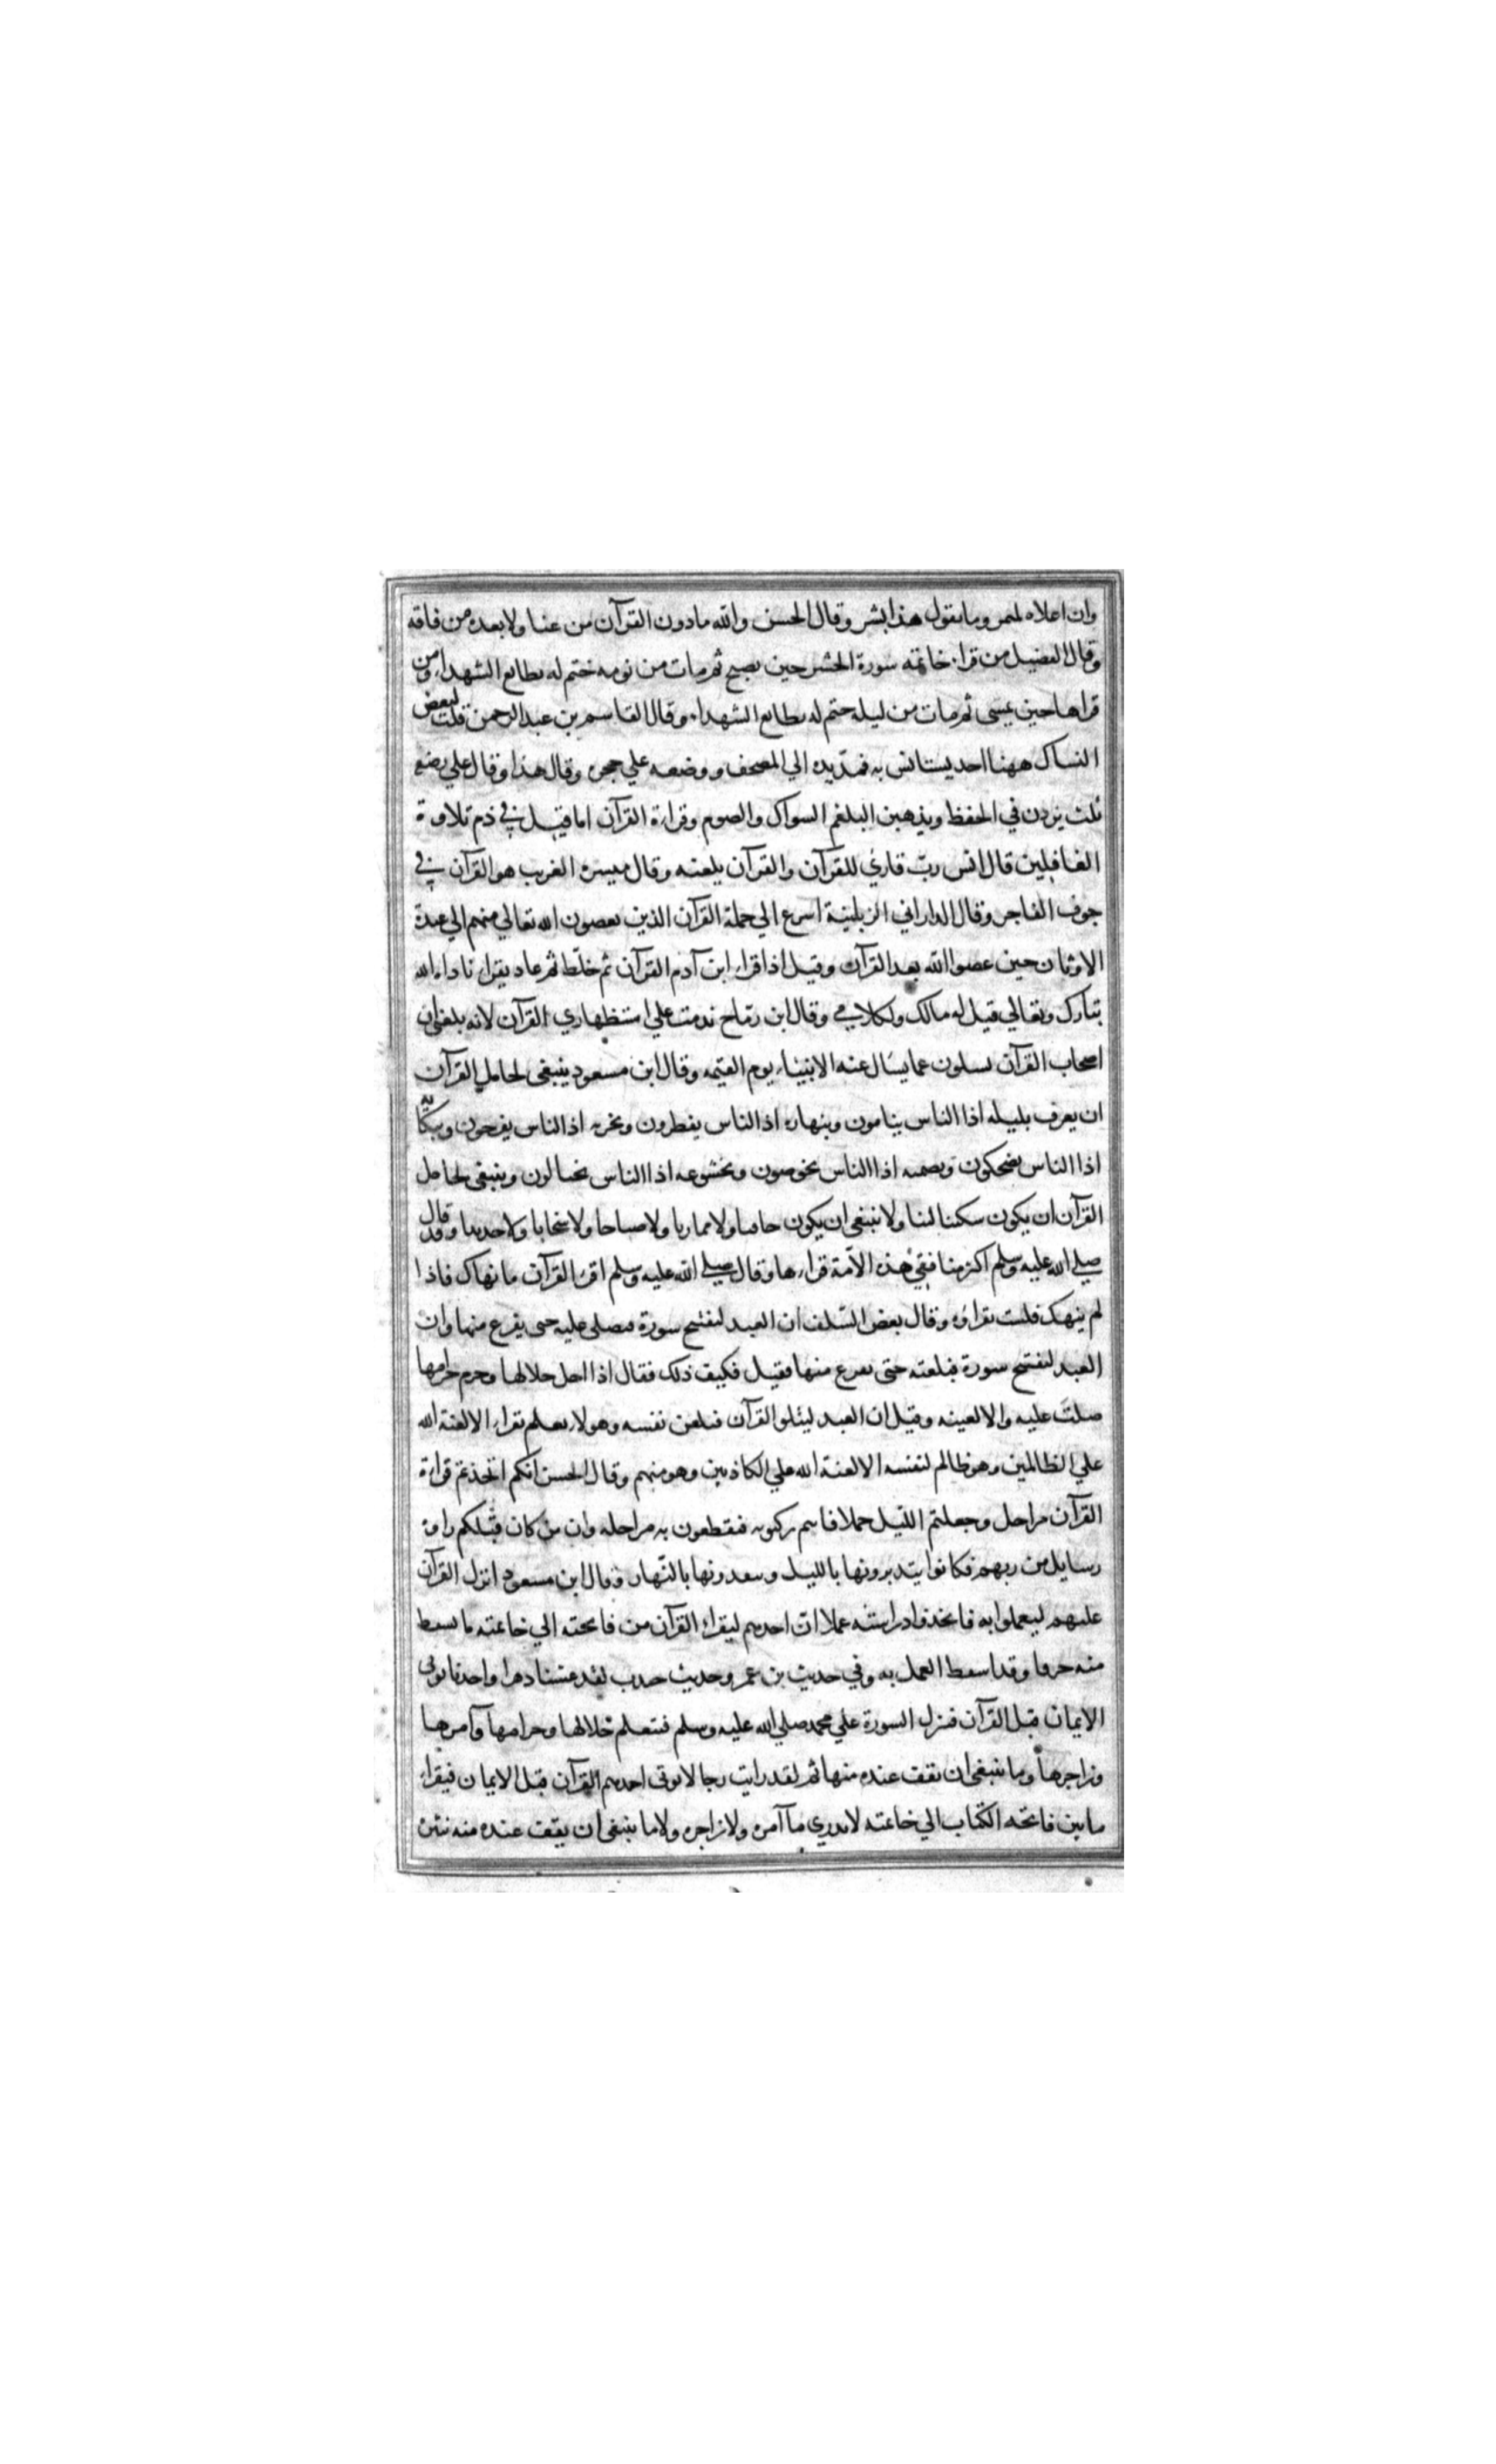 وان اعلاه لمثمر وما يقول هذا بشر وقال الحسن والله مادون القرآن من غنا ولا بعده من فاقه
وقال الفضيل من قراء خاتمه سورة الحشر حين يصبح ثم مات من يومه ختم له بطابع الشهداء ومن
قراها حين يمسى ثم مات من ليله ختم له بطابع الشهداء وقال القاسم بن عبد الرحمن قلت لبعض
النساك ههنا احد يستانس به فمد يده الي المصحف ووضعه علي حجره وقال هذا وقال علي رضع
ثلث يزدن في الحفظ ويذهبن البلغم السواك والصوم وقراءة القرآن اما قيل في ذم تلاوة
الغافلين قال انس رب قارئ للقرآن والقرآن يلعنه وقال ميسره الغريب هو القرآن في
جوف الفاجر وقال الداراني الزبانية اسرع الي حملة القرآن الذين يعصون الله تعالي منهم الي عبدة
الاوثان حين عصوا الله بعد القرآن وقيل اذا قراء ابن آدم القرآن ثم خلط ثم عاد يقراء ناداه الله
تبارك وتعالي قيل له مالك ولكلامي وقال ابن رماح ندمت علي استظهاري القرآن لانه بلغني ان
اصحاب القرآن يسلون عما يسال عنه الانبياء يوم القيمه وقال ابن مسعود ينبغى لحامل القرآن
ان يعرف بليله اذا الناس ينامون وبنهاره اذ الناس يفطرون وبحزنه اذ الناس يفرحون وببكائه
اذا الناس يضحكون وبصمته اذا الناس يخوضون وبخشوعه اذا الناس يختالون وينبغى لحامل
القرآن ان يكون سكينا لينا ولا ينبغى ان يكون جافيا ولا مماريا ولا صياحا ولا سخابا ولا حديدا وقد قال
صلي الله عليه وسلم اكثر منافقي هذه الامة قراءها وقال صلي الله عليه وسلم اقرء القرآن ما نهاك فاذا
لم ينهك فلست تقراؤه وقال بعض السلف ان العبد ليفتتح سورة فيصلى عليه حتى يفرغ منها وان
العبد ليفتتح سورة فيلعنه حتى يفرغ منها فقيل فكيف ذلك فقال اذا احل حلالها وحرم حرامها
صلت عليه والا لعينه وقيل ان العبد ليتلوا القرآن فيلعن نفسه وهو لا يعلم يقراء الا لعنة الله
علي الظالمين وهو ظالم لنفسه الا لعنة الله علي الكاذبين وهو منهم وقال الحسن انكم اتخذتم قراءة
القرآن مراحل وجعلتم الليل حملا فانتم تركبونه فتقطعون به مراحله وان من كان قبلكم راوه
رسايل من ربهم فكانوا يتدبرونها بالليل وينفدونها بالنهار وقال ابن مسعود انزل القرآن
عليهم ليعملوا به فاتخذوا دراسته عملا ان احدهم ليقراء القرآن من فاتحته الي خاتمته ما يسقط
منه حرفا وقد اسقط العمل به وفي حديث بن عمر وحديث جندب لقد عشنا دهرا واحدنا يوتى
الايمان قبل القرآن فتنزل السورة علي محمد صلي الله عليه وسلم فتتعلم حلالها وحرامها وآمرها
وزاجرها وما ينبغى ان يقف عنده منها ثم لقد رايت رجالا يوتى احدهم القرآن قبل الايمان فيقراء
ما بين فاتحة الكتاب الي خاتمته لا يدري ما آمره ولا زاجره ولا ما ينبغى ان يقف عنده منه ينثره